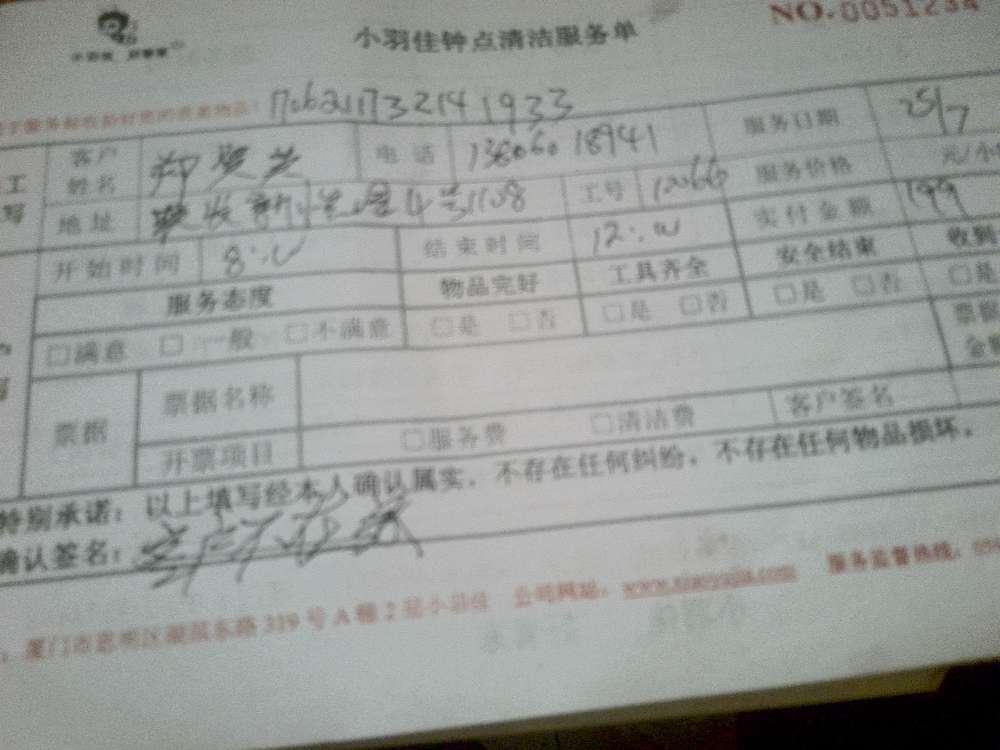 NO.0051234
小羽佳钟点清洁服务单
1706211732141933
客户姓名 电话 13606018941 服务日期 25/7
地址 4号1108 工号 12066 服务价格 元/小
开始时间 8:00 结束时间 12:00 实付金额 199
服务态度 物品完好 工具齐全 安全结束 收到
□满意 □一般 □不满意 □是 □否 □是 □否 □是 □否 □是
票据 票据名称 票据
开票项目 □服务费 □清洁费 客户签名
特别承诺：以上填写经本人确认属实，不存在任何纠纷，不存在任何物品损坏。
确认签名：客户不在家
厦门市思明区湖滨东路319号A幢2层小羽佳 公司网站：www.xiaoyujia.com 服务监督热线：